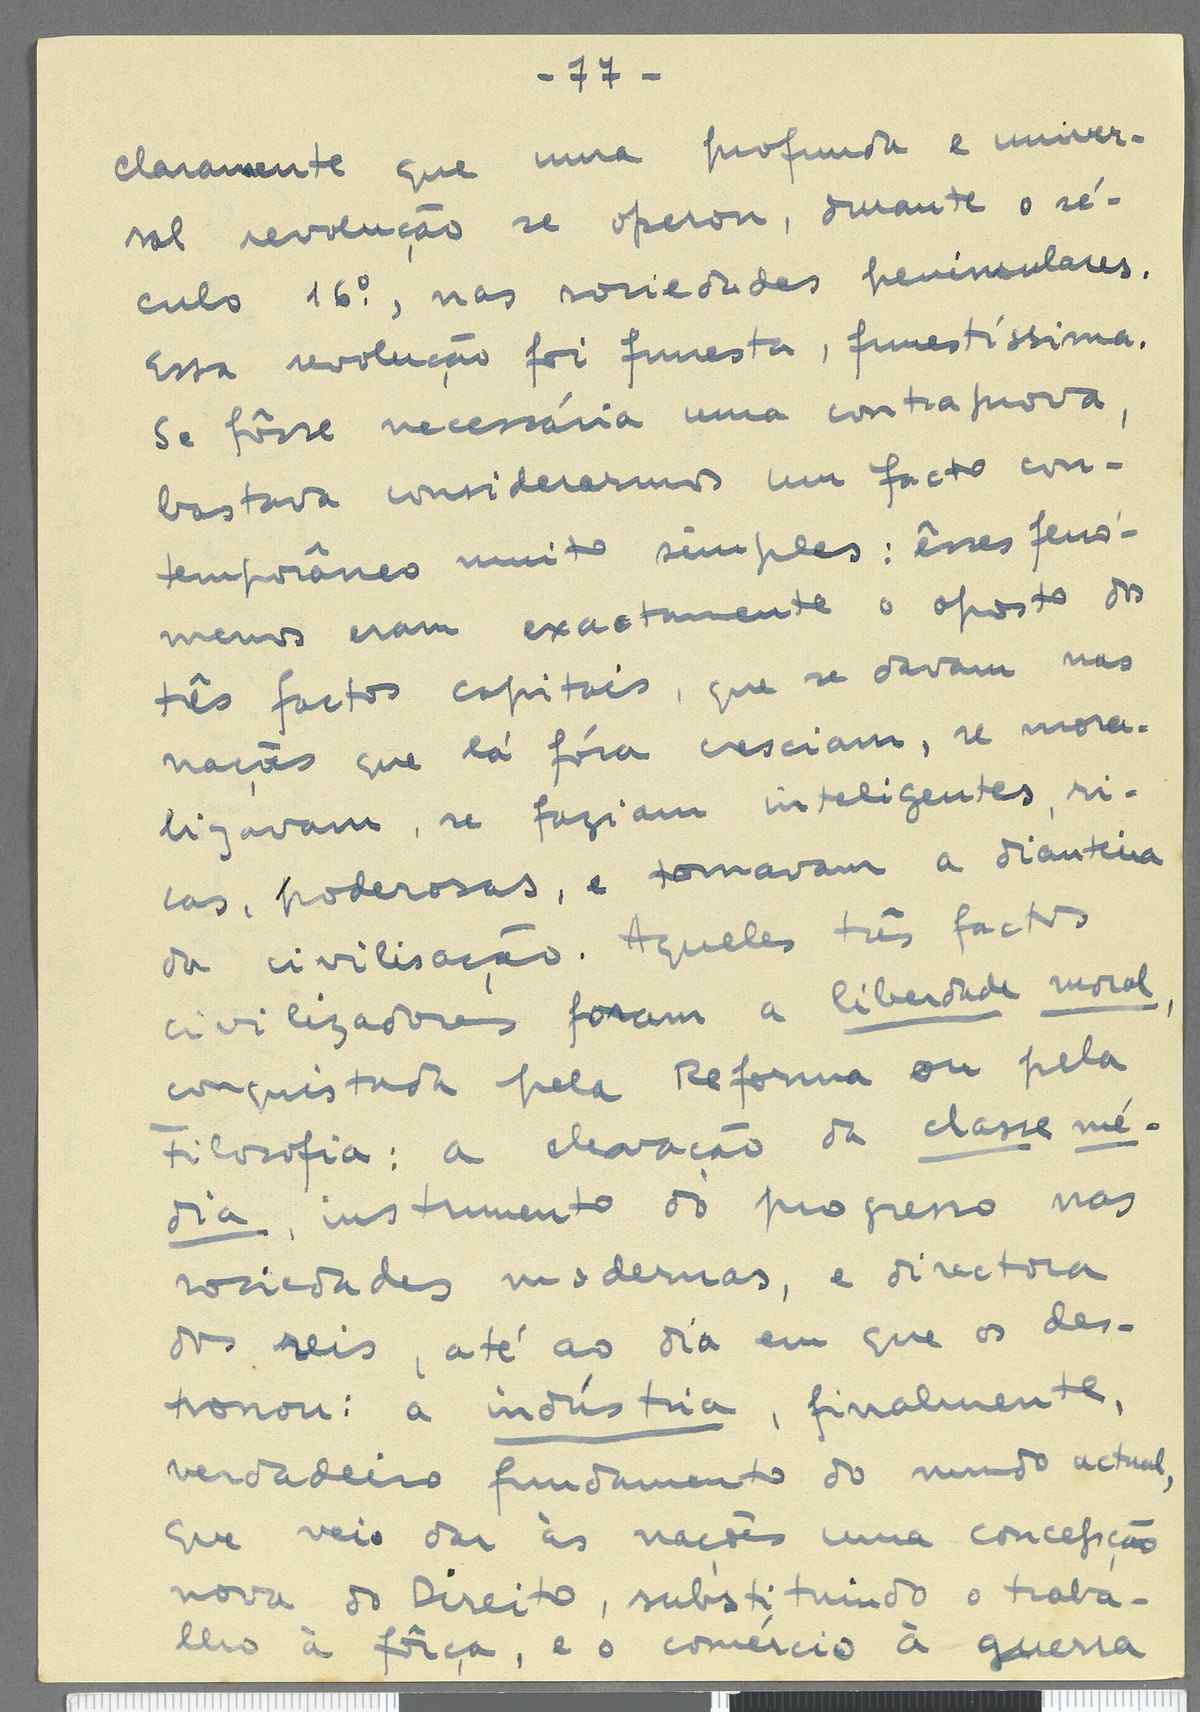 - 77 -
claramente que uma profunda e univer-
sal revolução se operou, durante o sé-
culo 16º., nas sociedades peninsulares.
Essa revolução foi funesta, funestíssima.
Se fôsse necessária uma contraprova,
bastava considerarmos um facto con-
temporâneo muito simples: êsses fenó-
menos eram exactamente o oposto dos
três factos capitais, que se davam nas
nações que lá fóra cresciam, se mora-
lizavam, se faziam inteligentes, ri-
cas, poderosas, e tomavam a dianteira
da civilisação. Aqueles três factos
civilizadores foram a liberdade moral,
conquistada pela Reforma ou pela
Filosofia: a elevação da classe mé-
dia, instrumento do progresso nas
sociedades modernas, e directora
dos reis, até ao dia em que os des-
tronou: a indústria, finalmente,
verdadeiro fundamento do mundo actual,
que veio dar às nações uma concepção
nova do Direito, substituindo o traba-
lho à fôrça, e o comércio à guerra